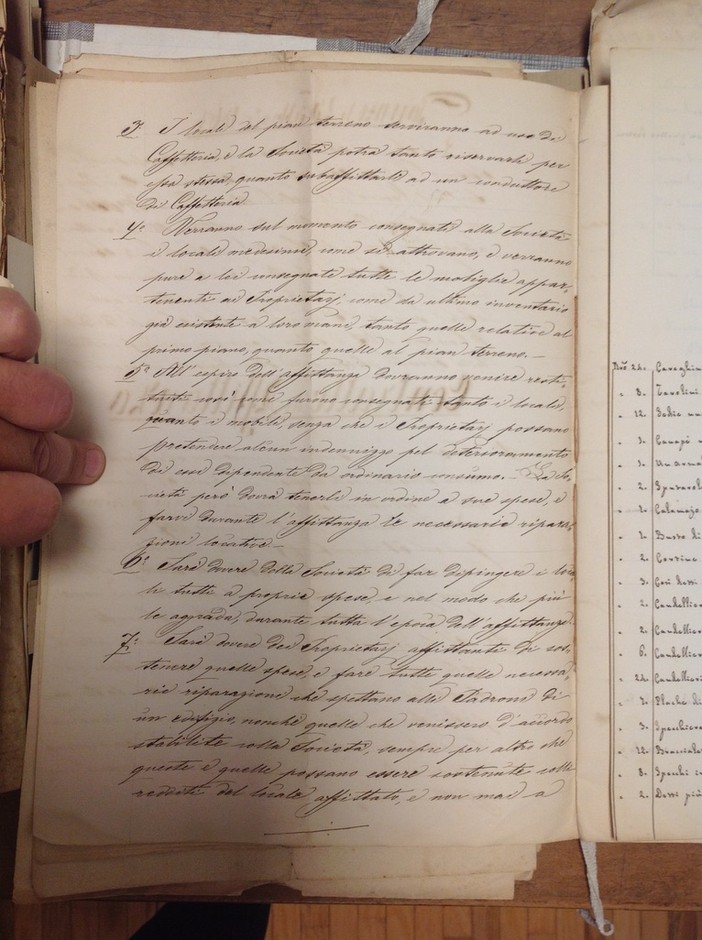 3º I locali del pian terreno serviranno ad uso di
Caffetteria, e la Società potrà tanto riservarli per
essa stessa, quanto subaffittarli ad un conduttore
di Caffetteria.
4º Verranno sul momento consegnati alla Società
i locali medesimi, come si attrovano, e verranno
pure a lei consegnate tutte le mobiglie appar-
tenenti ai Proprietarj come da ultimo inventario
già esistente a loro mani, tanto quelle relative al
primo piano, quanto quelle al pian terreno.—
5º All'espiro dell'affittanza dovranno venire resti-
tuiti così come furono consegnati tanto i locali,
quanto i mobili, senza che i Proprietarj possano
pretendere alcun indennizzo pel deterioramento
di essi dipendente da ordinario consumo.— La So-
cietà però dovrà tenerli in ordine a sue spese, e
farvi durante l'affittanza le necessarie ripara-
zioni locative.—
6º Sarà dovere della Società di far dipingere i loca-
li tutti a proprie spese, e nel modo che più
le aggrada, durante tutta l'epoca dell'affittanza.
7º Sarà dovere dei Proprietarj affittanti di sos-
tenere quelle spese, e fare tutte quelle necessa-
rie riparazioni che spettano alli Padroni di
un edifizio, nonchè quelle che venissero d'accordo
stabilite colla Società, sempre per altro che
queste e quelle possano essere sostenute colle
rendite del locale affittato, e non mai a
24.
" 8. Tavolini
" 12.
" 1. Canapè
" 1. Un arma
" 2.
" 1. Calamajo
" 1. Busto di
" 2. Cortine
" 3.
" 2. Candellier
" 2. Candellier
" 6. Candellier
" 24. Candellier
" 1. Placha di
" 3. Specchiera
" 12. Bracciale
" 8. Specchi
" 2. più